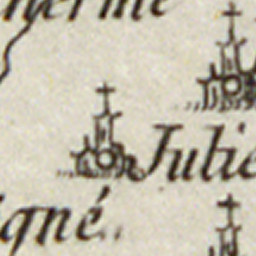 herme
Julie
igné